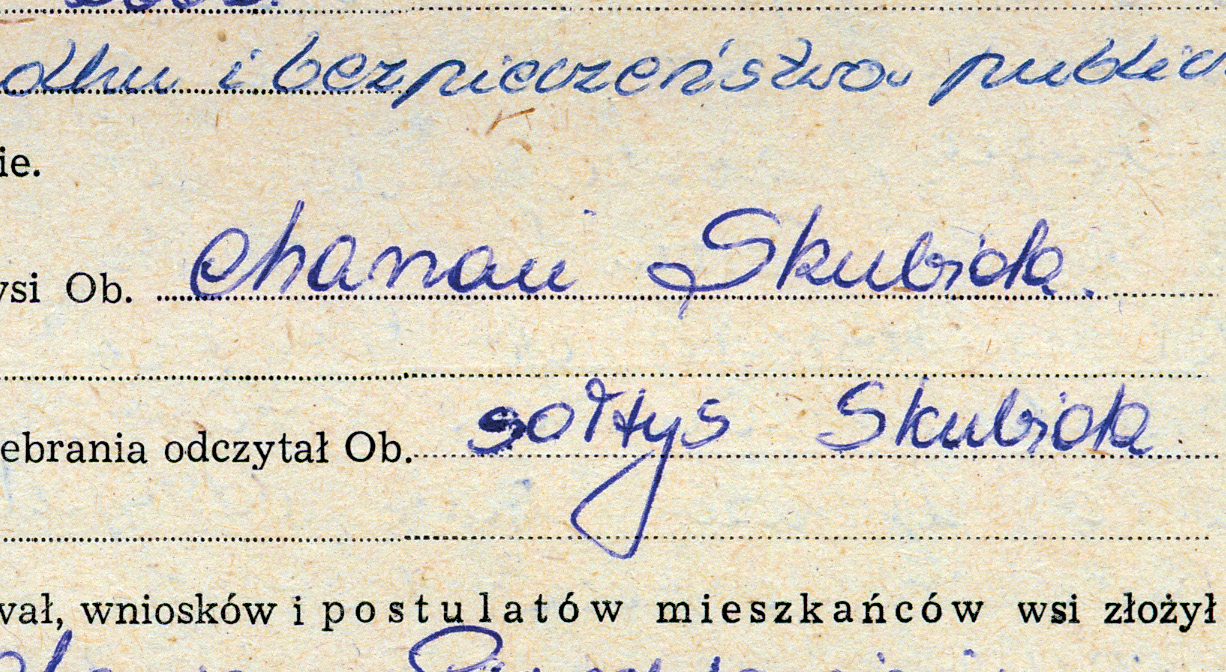 odku i bezpieczeństwa public
ie.
ysi Ob. Skubida.
ebrania odczytał Ob. sołtys Skubida
wał, wniosków i postulatów mieszkańców wsi złożył